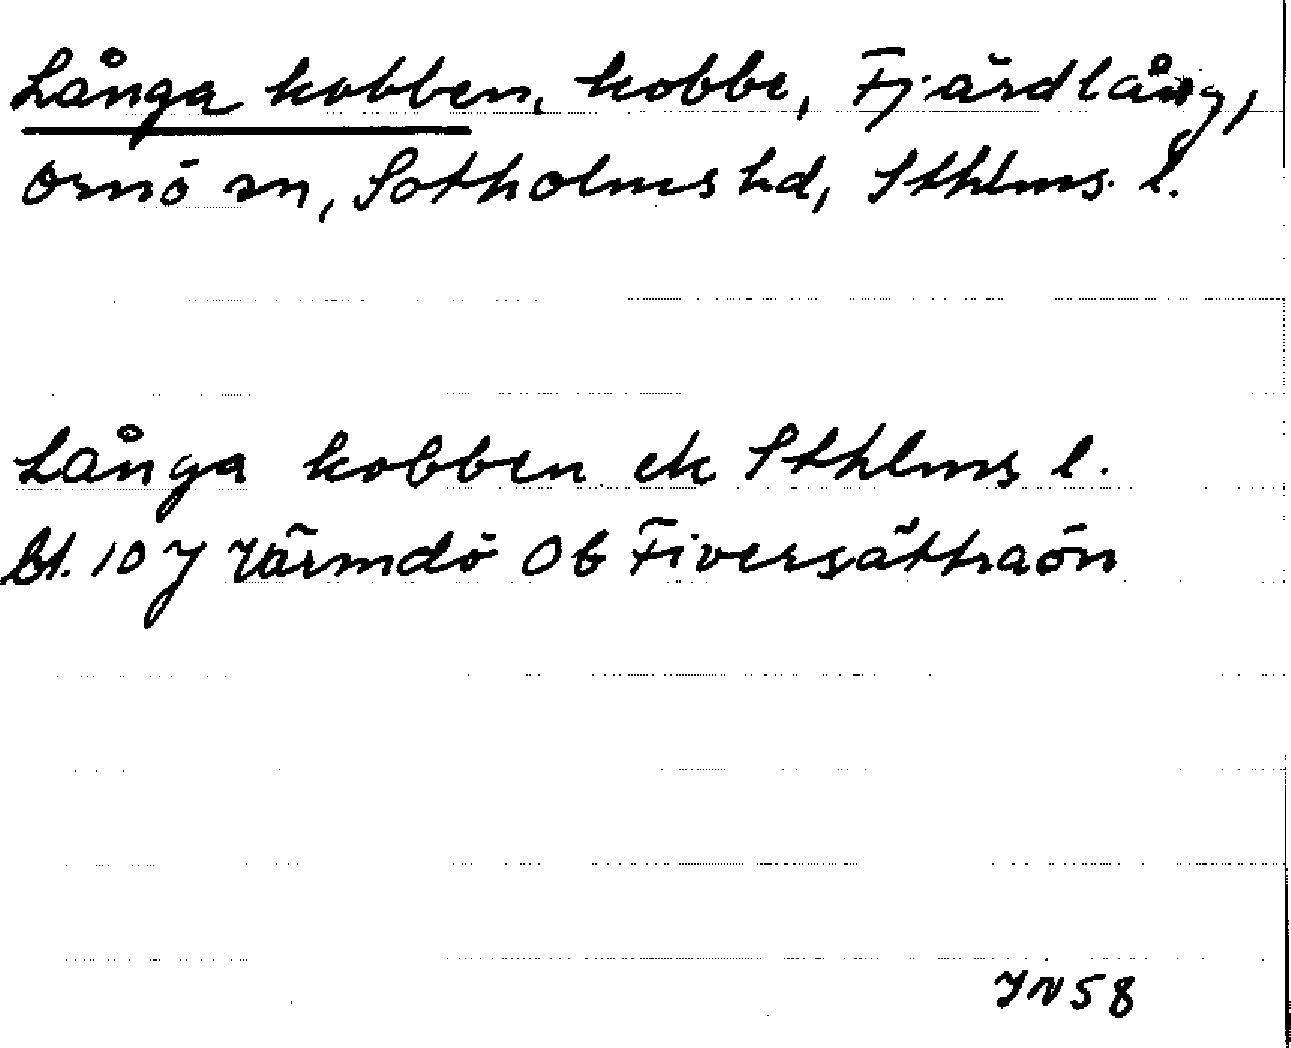 Långa kobben, kobbe, Fjärdlång,
Ornö sn, Sotholms hd, Sthlms. l.
Långa kobben ek Sthlms l.
Bl. 10 J Värmdö Ob Fiversättraön
JN 58